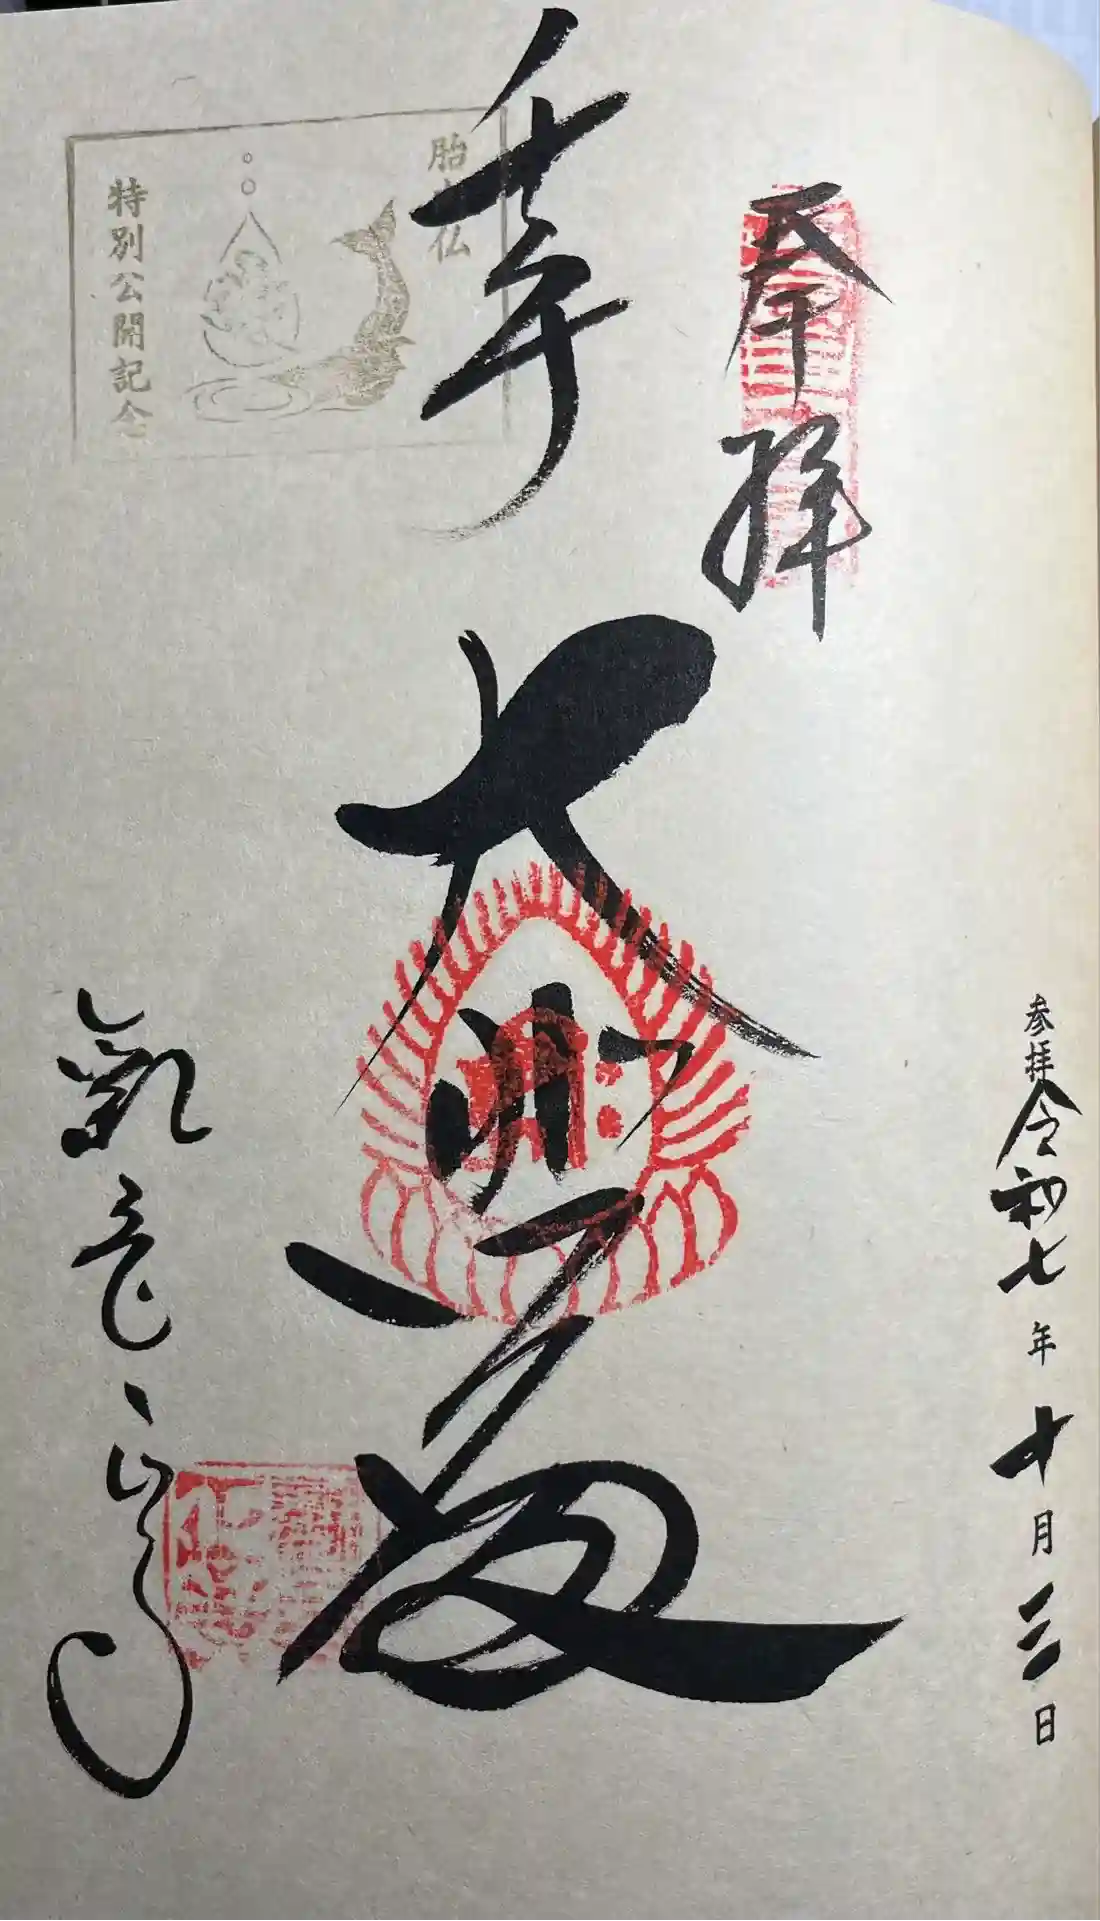 参拝 令和七年十月三日
奉拝
千手大悲殿
胎内仏
特別公開記念
観音正寺